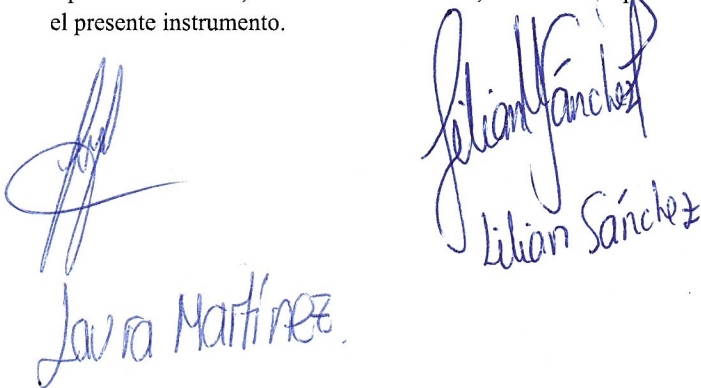 el presente instrumento.
Lilian Sánchez
Lilian Sánchez
Laura Martínez.